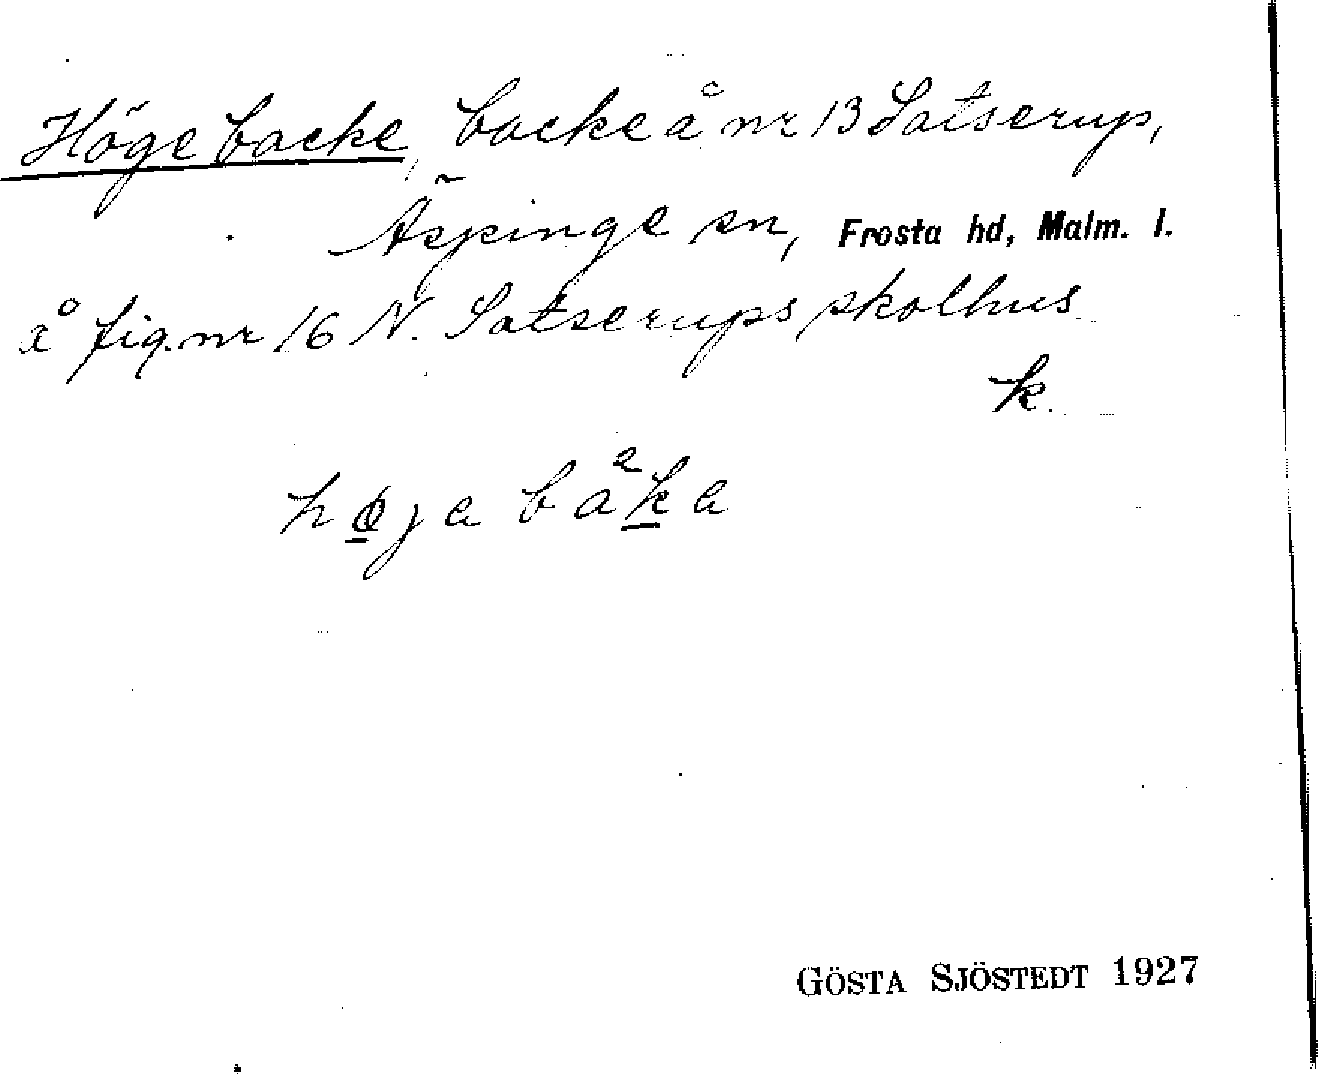 Höge backe, backe å nr 13 Satserup,
Äspinge sn, Frosta hd, Malm. l.
å fig. nr 16 N. Satserups skolhus
k.
høja baka
GÖSTA SJÖSTEDT 1927